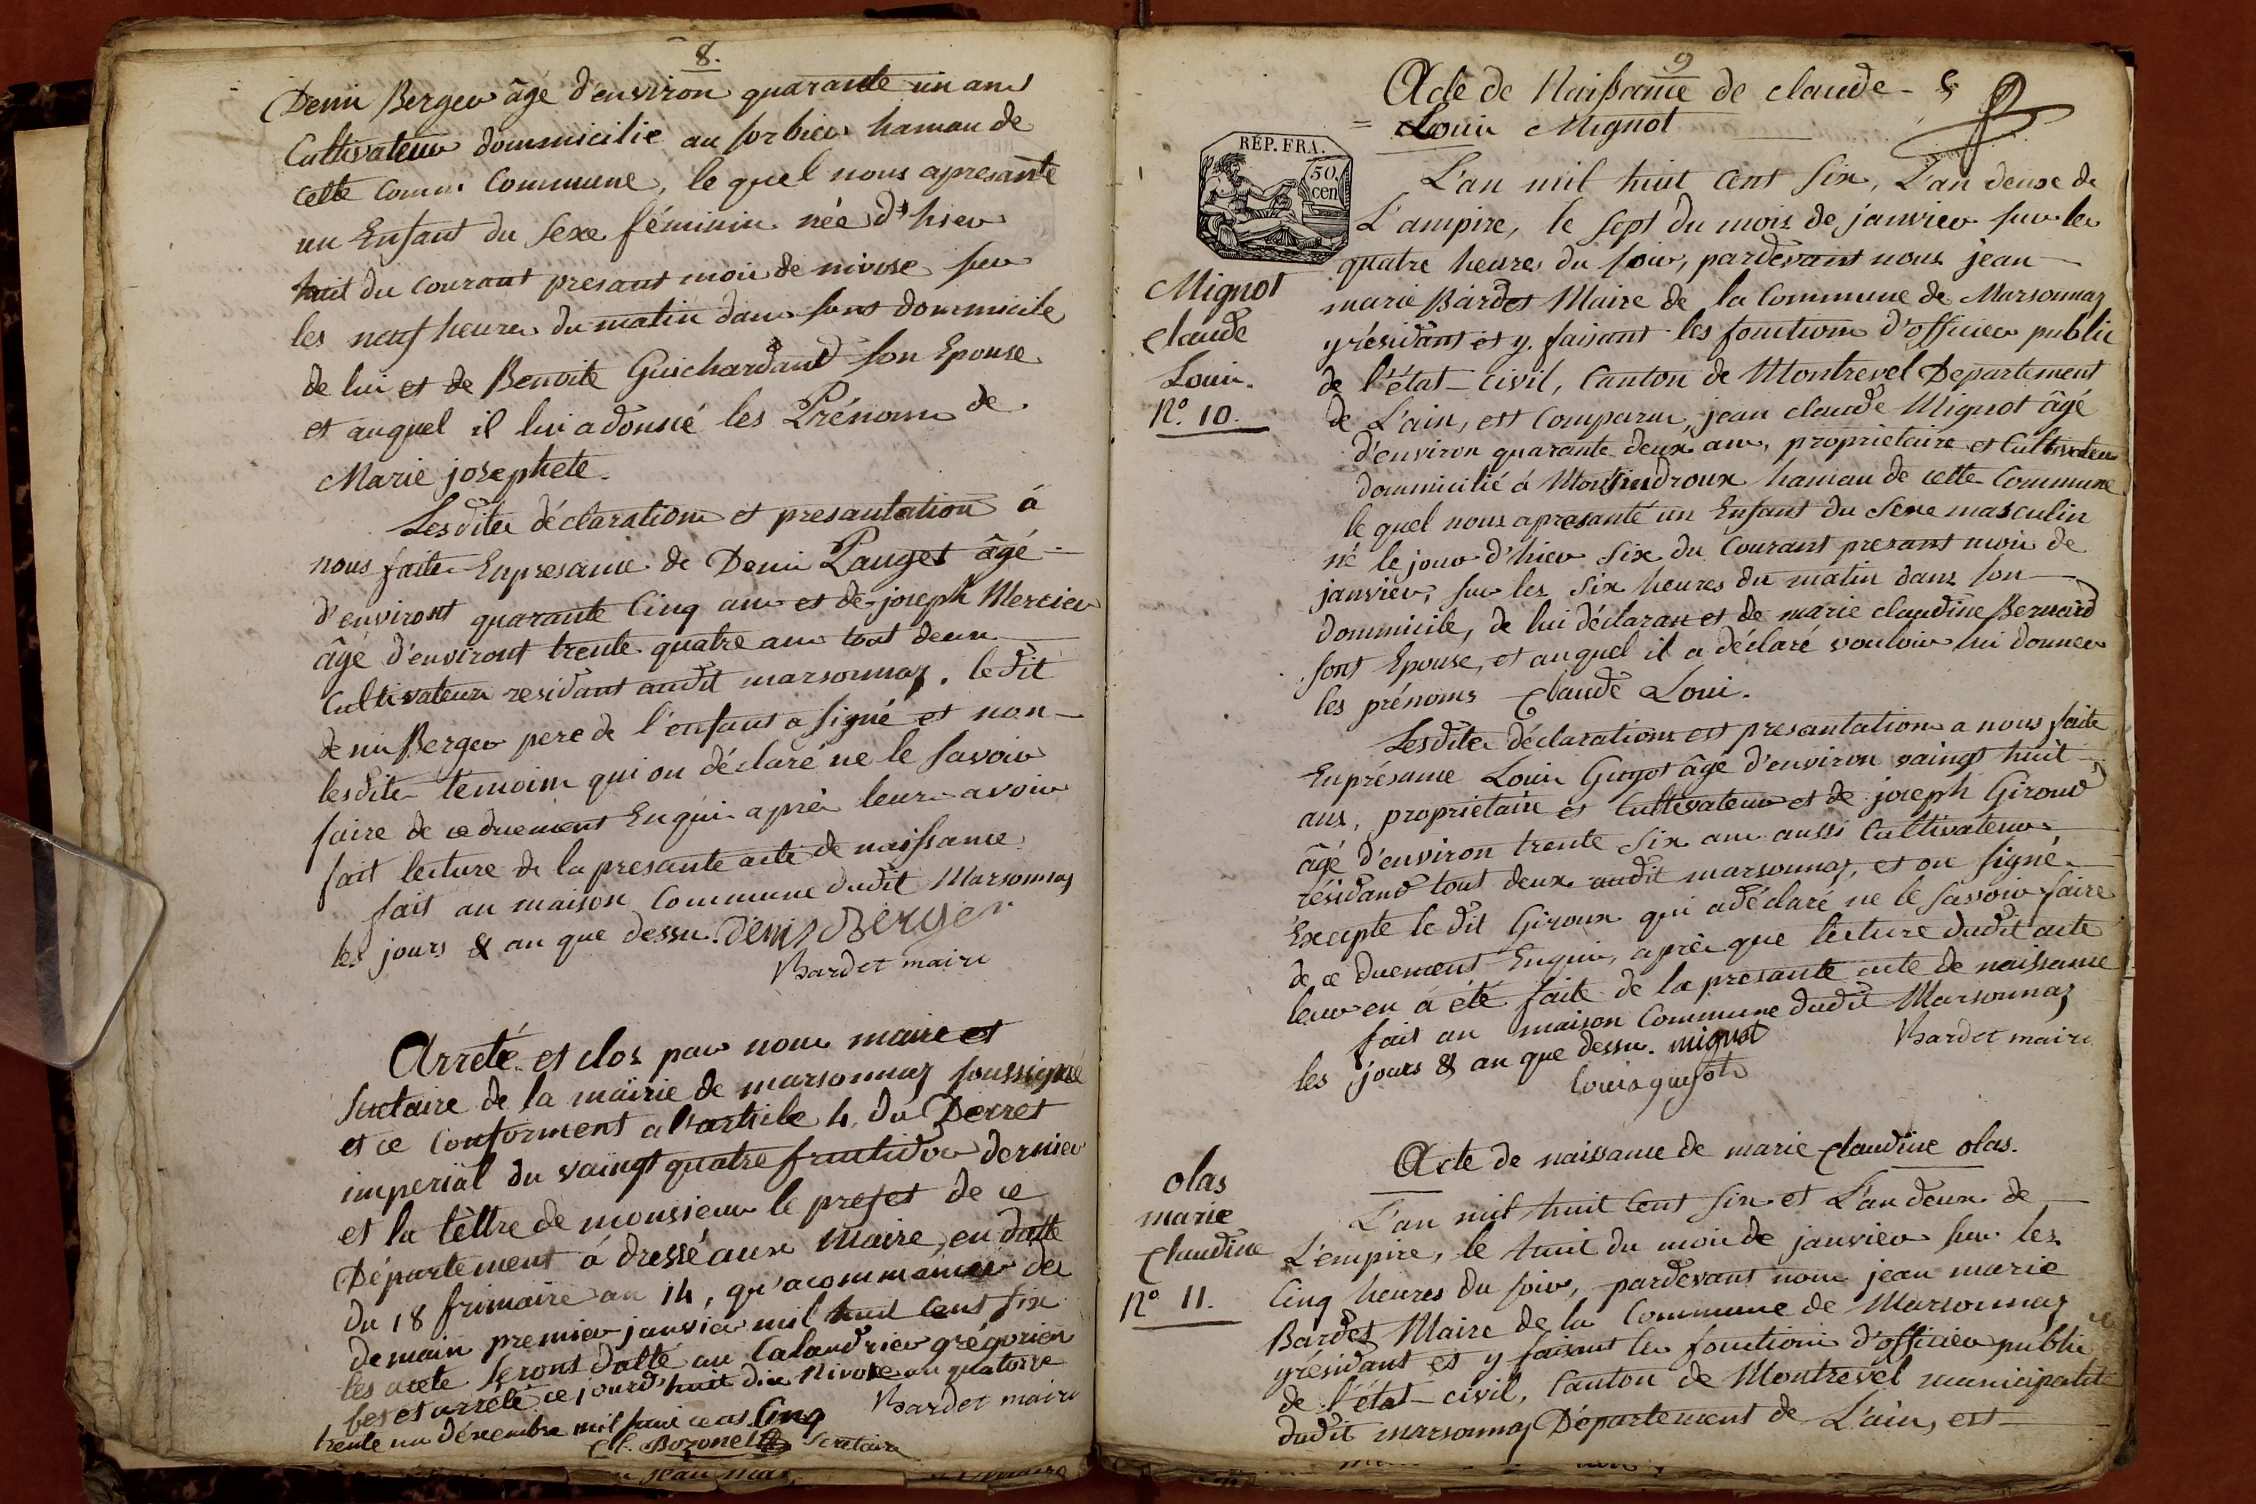 8.
Denis Berger âgé d'environ quarante un ans
Cultivateur dommicilie au sorbier hamau de
cette Comm. Commune, le quel nous apresanté
un Enfant du sexe féminin née d'hier
huit du courant presant mois de nivose sur
les neuf heures du matin dans sont dommicile
de lui et de Benoite Guichardand son Epouse
et auquel il lui a donné les Prénoms de
Marie josephete.
Lesdites déclarations et presantation à
nous faites Enpresance de Denis Pauget âgé
d'environt quarante Cinq ans et de joseph Mercier
âgé d'environt trente quatre ans tout deux
Cultivateurs residant audit marsonnaz. le dit
denis Berger pere de l'enfant a signé et non
lesdits temoins qui on déclaré ne le savoir
faire de ce duement Enquis après leurs avoir
fait lecture de la presante acte de naissance
fait au maison Commune dudit Marsonnaz
les jours & an que dessu. denis Berger
Bardet maire
Arreté et clos par nous maire et
Secretaire de la mairie de marsonnaz soussigné
et ce conforment a l'article 4. du Decret
imperial du vaingt quatre fructidor dernier
et la lettre de monsieur le prefet de ce
Département à dressé aux Maire, en datte
du 18 frimaire an 14, qu'acommancer des
demain premier janvier mil huit Cent six
les acte seronts datté au Calandrier grégorien
et arrété ce jourd'huit dix Nivose an quatorze
trente un décembre mil huit cent Cinq Bardet maire
Cl. Bozonet Secretaire
9
Acte de Naissance de claude-
= Louis Mignot
RÉP. FRA.
50 cen
Mignot
claude
Louis.
N.º 10.
L'an mil huit Cent six, L'an deuxe de
L'ampire, le sept du mois de janvier sur les
quatre heures du soir, pardevant nous jean
marie Bardet Maire de la Commune de Marsonnaz
y résidant et y faisant les fonctions d'officier public
de l'état-civil, Canton de Montrevel Departement
de L'ain, est Comparu, jean claude Mignot âgé
d'environ quarante deux ans, proprietaire et Cultivateur
dommicilié à Montsindroux hamau de cette Commune
le quel nous apresanté un Enfant du Sexe masculin
né le jour d'hier six du Courant presant mois de
janvier, sur les six heures du matin dans son
dommicile, de lui déclarant et de marie claudine Bernard
sont Epouse, et auquel il a déclaré vouloir lui donner
les prénoms Claude Loui.
Lesdites déclarations et presantation a nous faite
Enprésance Louis Guyot âgé d'environ vaingt huit
ans, proprietaire et Cultivateur et de joseph Giroud
âgé d'environ trente six ans aussi Cultivateur,
résidant tout deux audit marsonnaz, et on signé
Excepte le dit Giroux qui adéclaré ne le savoir faire
de ce duement Enquis, après que lecture dudit acte
leur en à été faite de la presante acte de naissance
fait au maison Commune dudit Marsonnaz
les jours & an que dessu. mignot Bardet maire
louis guyot
Acte de naissance de marie Claudine olas.
olas
marie
Claudine
Nº 11.
L'an mil huit Cent six et L'an deux de
L'empire, le huit du mois de janvier sur les
Cinq heures du soir, pardevant nous jean marie
Bardet Maire de la Commune de Marsonnaz
y résidant et y faisant les fonctions d'officier public
de l'état-civil, Canton de Montrevel municipalité
dudit marsonnaz Département de L'ain, est